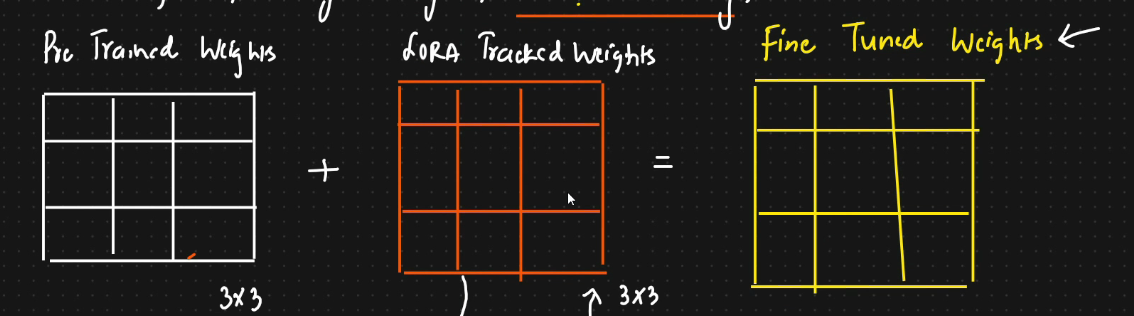 Pre Trained Weights
LORA Tracked Weights
Fine Tuned Weights
+
=
3x3
3x3